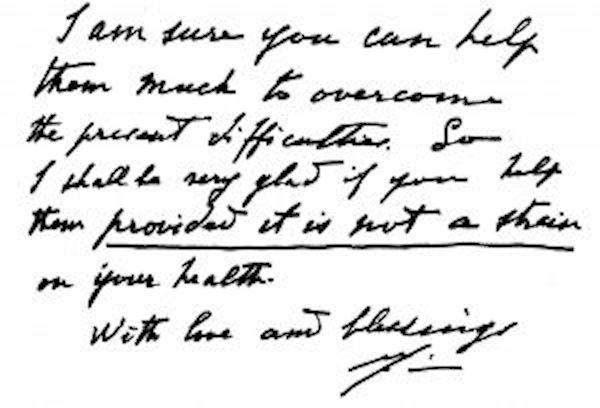 I am sure you can help
them much to overcome
the present difficulties. So
I shall be very glad if you help
them provided it is not a strain
on your health.
With love and blessings